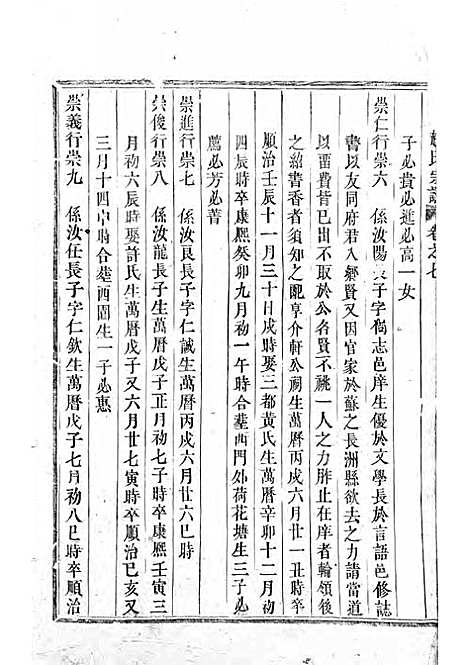 趙氏宗譜 卷之七
子必貴必進必高一女
崇仁行崇六 係汝陽長子字獨志邑庠生優於文學長於言語邑修誌
書以友同府君入鄉賢又因官家於蘇之長洲縣欲去之力請當道
以苗費對不以公名賢不祧一人之力胙止在庠者輪領後
之紹書香者須知之配享介軒公祠生萬曆丙戌六月廿一丑時卒
順治壬辰十一月三十日戌時娶三都黃氏生萬曆辛卯十二月初
四辰時卒康熙癸卯九月初一午時合塟西門外荷花塘生三子必
薦必芳必菁
崇進行崇七 係汝良長子字仁誠生萬曆丙戌六月廿六巳時
崇俊行崇八 係汝龍長子生萬曆戊子正月初七子時卒康熙壬寅三
月初六辰時娶許氏生萬曆戊子又六月廿七寅時卒順治己亥又
三月十四申時合塟西園生一子必惠
崇義行崇九 係汝任長子字仁欽生萬曆戊子七月初八巳時卒順治